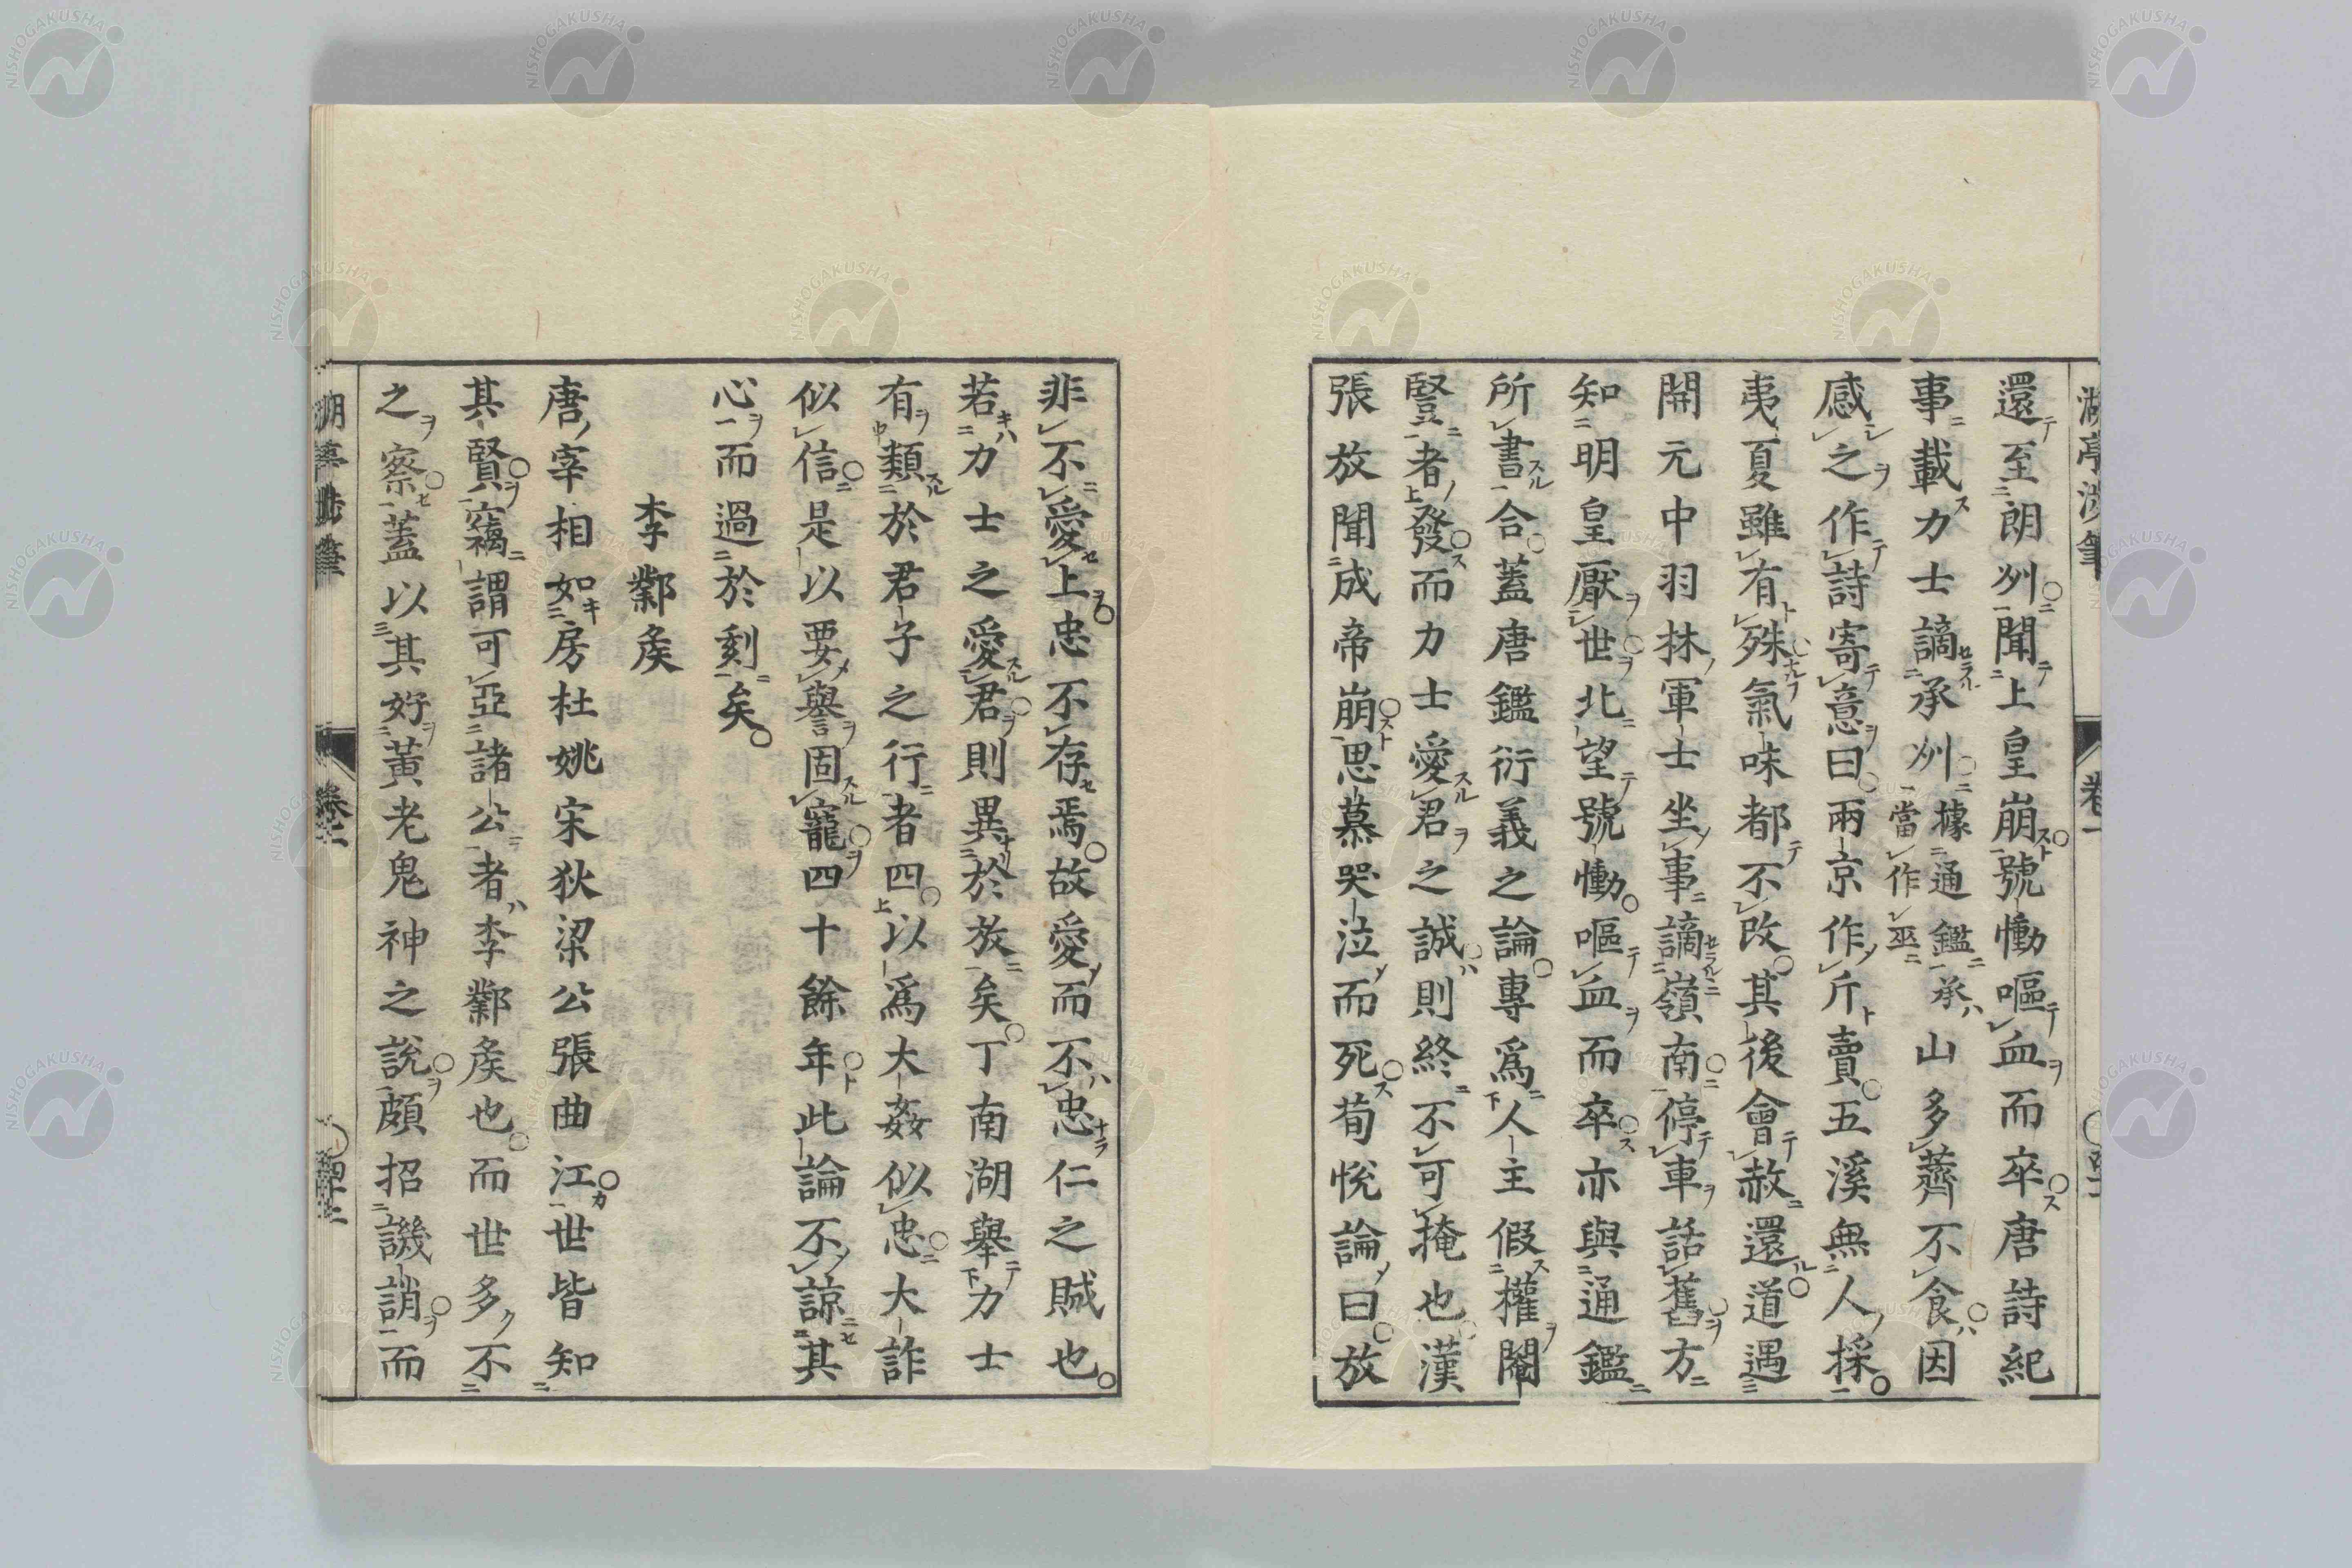 還至朗州聞上皇崩號慟嘔血而卒唐詩紀
事載力士謫承州據通鑑承當作巫山多薺不食因
感之作詩寄意曰兩京作斤賣五溪無人採
夷夏雖有殊氣味都不改其後會赦還道遇
開元中羽林軍士坐事謫嶺南停車話舊方
知明皇厭世北望號慟嘔血而卒亦與通鑑
所書合蓋唐鑑衍義之論專爲人主假權閹
豎者發而力士愛君之誠則終不可掩也漢
張放聞成帝崩思慕哭泣而死荀悅論曰放
非不愛上忠不存焉故愛而不忠仁之賊也
若力士之愛君則異於放矣丁南湖舉力士
有類於君子之行者四以爲大姦似忠大詐
似信是以要譽固寵四十餘年此論不諒其
心而過於刻矣
李鄴矦
唐宰相如房杜姚宋狄梁公張曲江世皆知
其賢竊謂可亞諸公者李鄴矦也而世多不
之察蓋以其好黃老鬼神之說頗招譏誚而